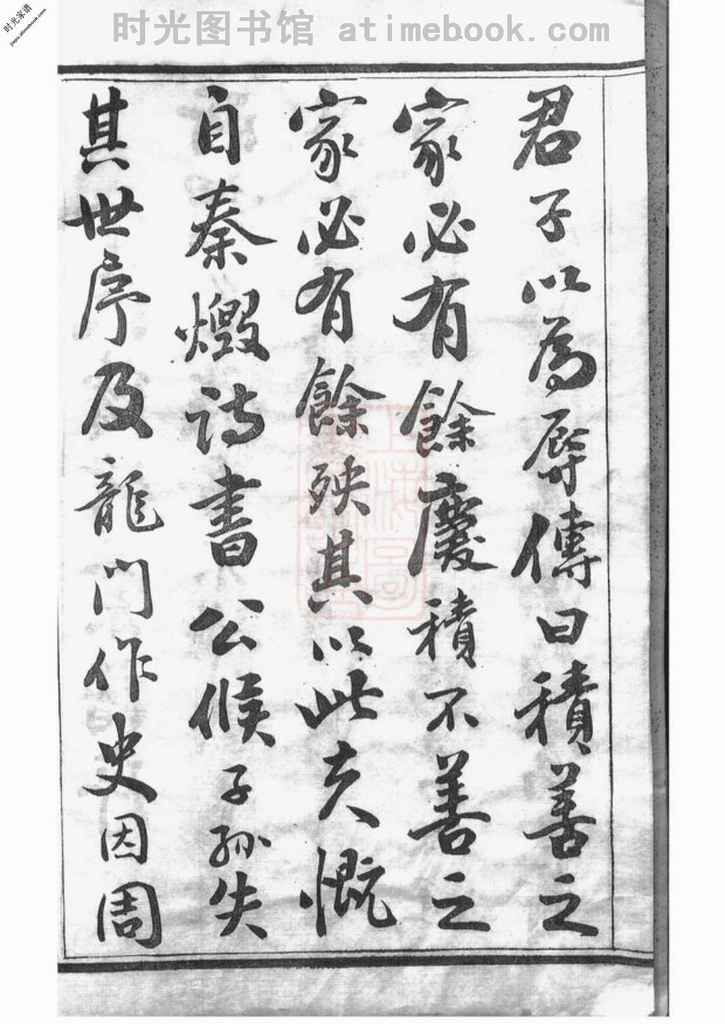 时光图书馆 atimebook.com
时光家谱
君子以為辱傳曰積善之
家必有餘慶積不善之
家必有餘殃其以此夫慨
自秦燬詩書公侯子孫失
其世序及龍門作史因周